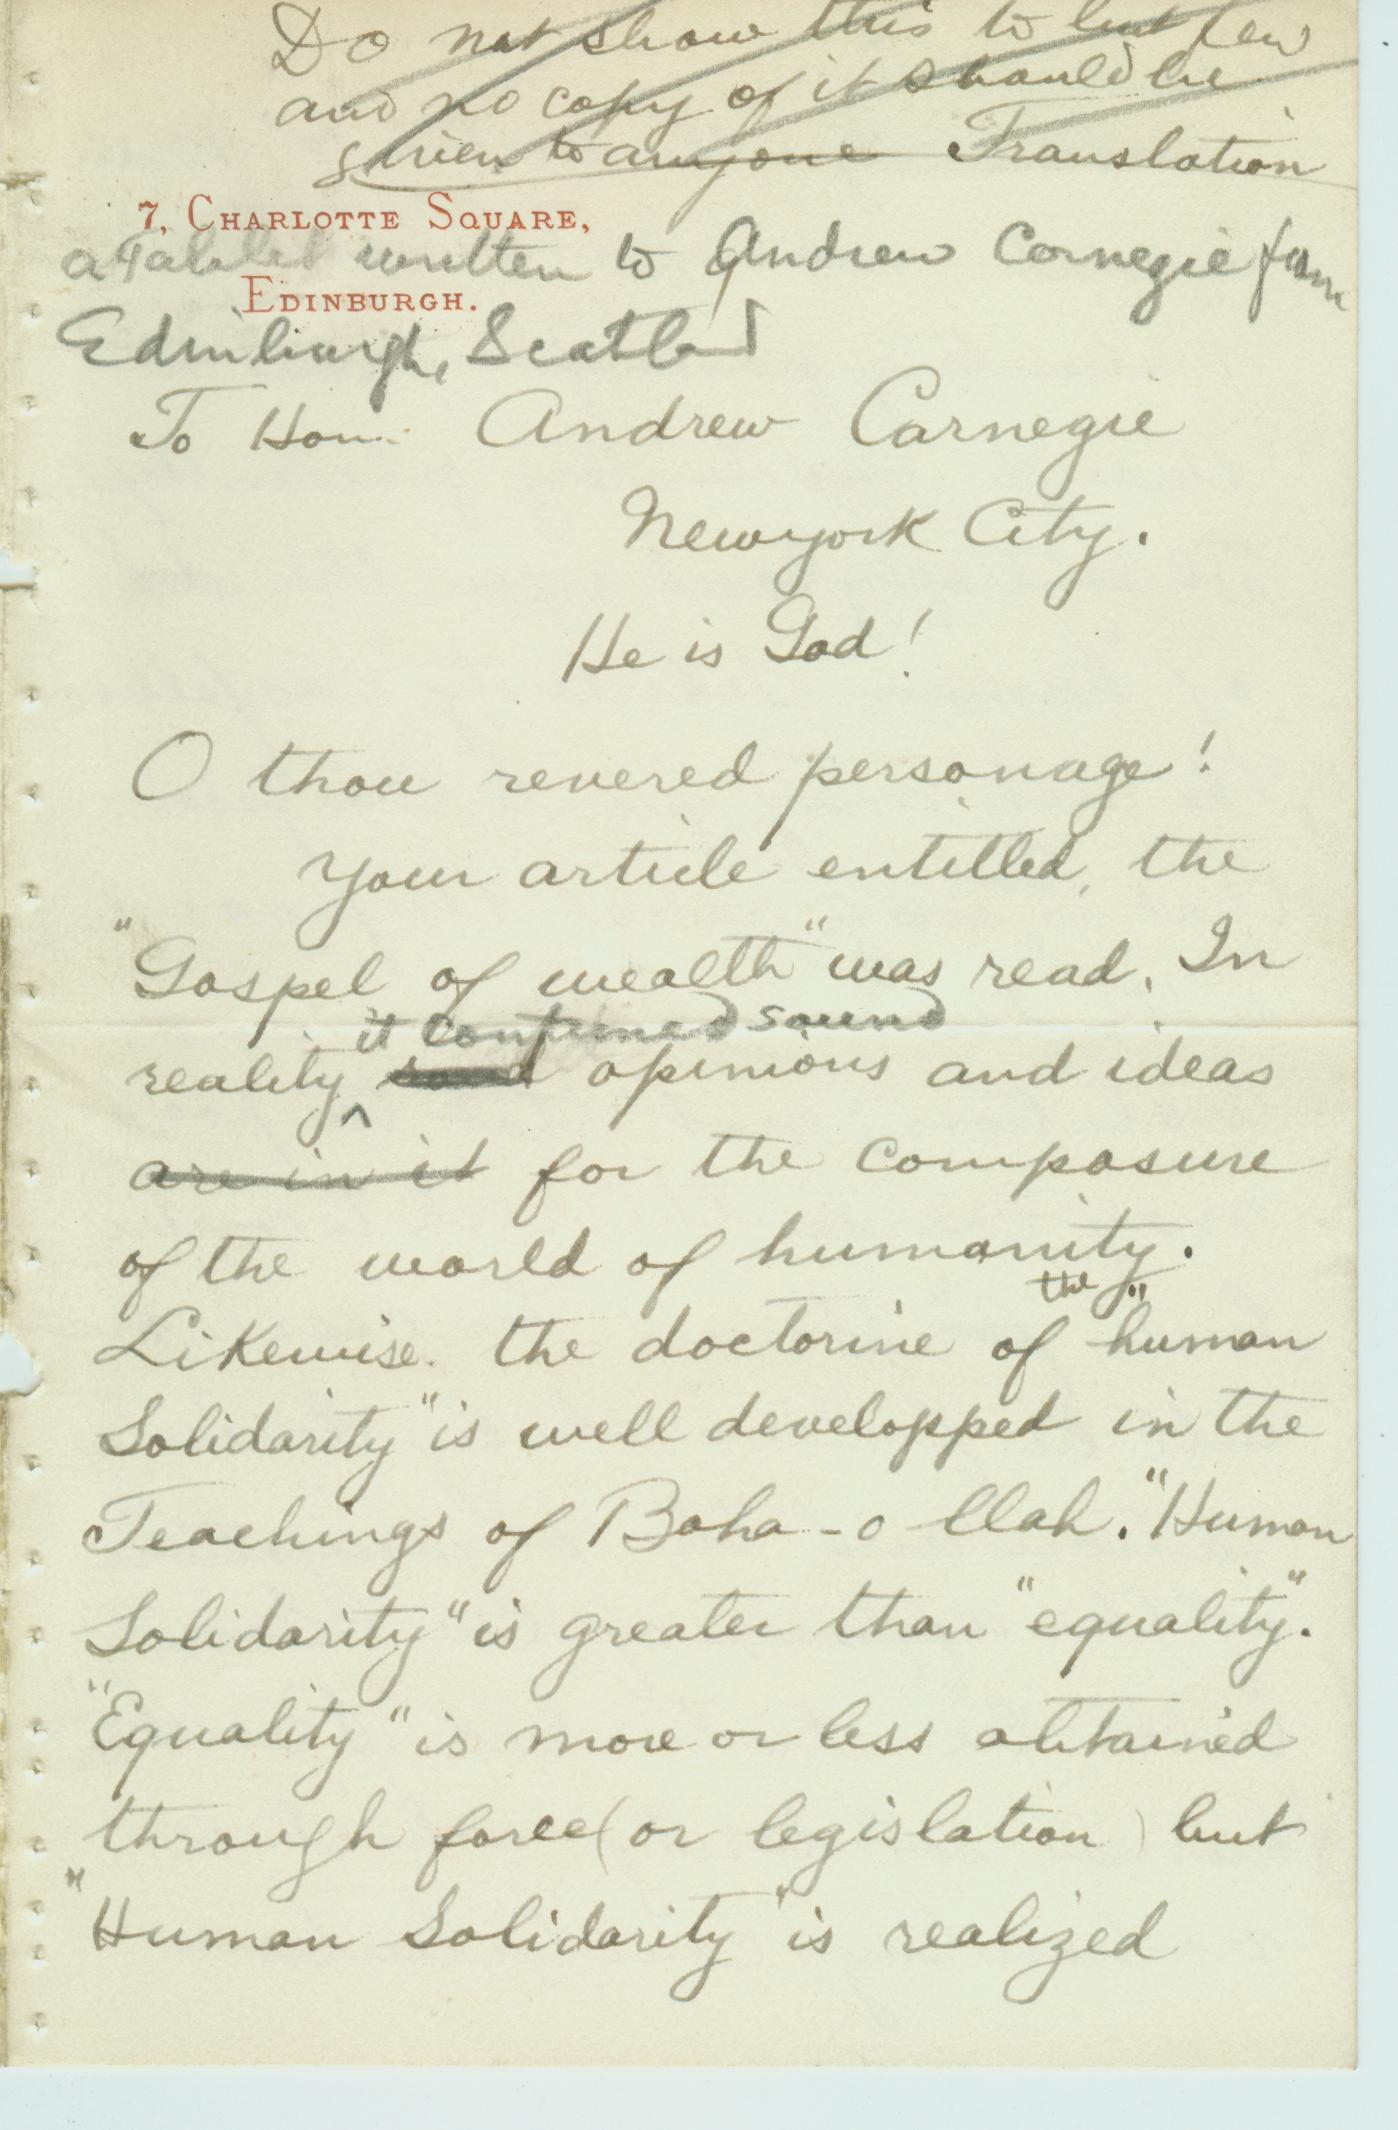 Do not show this to but few
and no copy of it should be
given to anyone Translation
7, CHARLOTTE SQUARE,
a Tablet written to Andrew Carnegie from
EDINBURGH.
Edinburgh, Scotland
To Hon. Andrew Carnegie
Newyork City.
He is God!
O thou revered personage!
Your article entitled, the
"Gospel of wealth" was read. In
it contained sound
reality opinions and ideas
are in it for the composure
of the world of humanity.
the
Likewise. the doctorine of "human
Solidarity" is well developped in the
Teachings of Baha-o-llah. "Human
Solidarity" is greater than "equality".
"Equality" is more or less obtained
through force (or legislation) but
"Human Solidarity" is realized